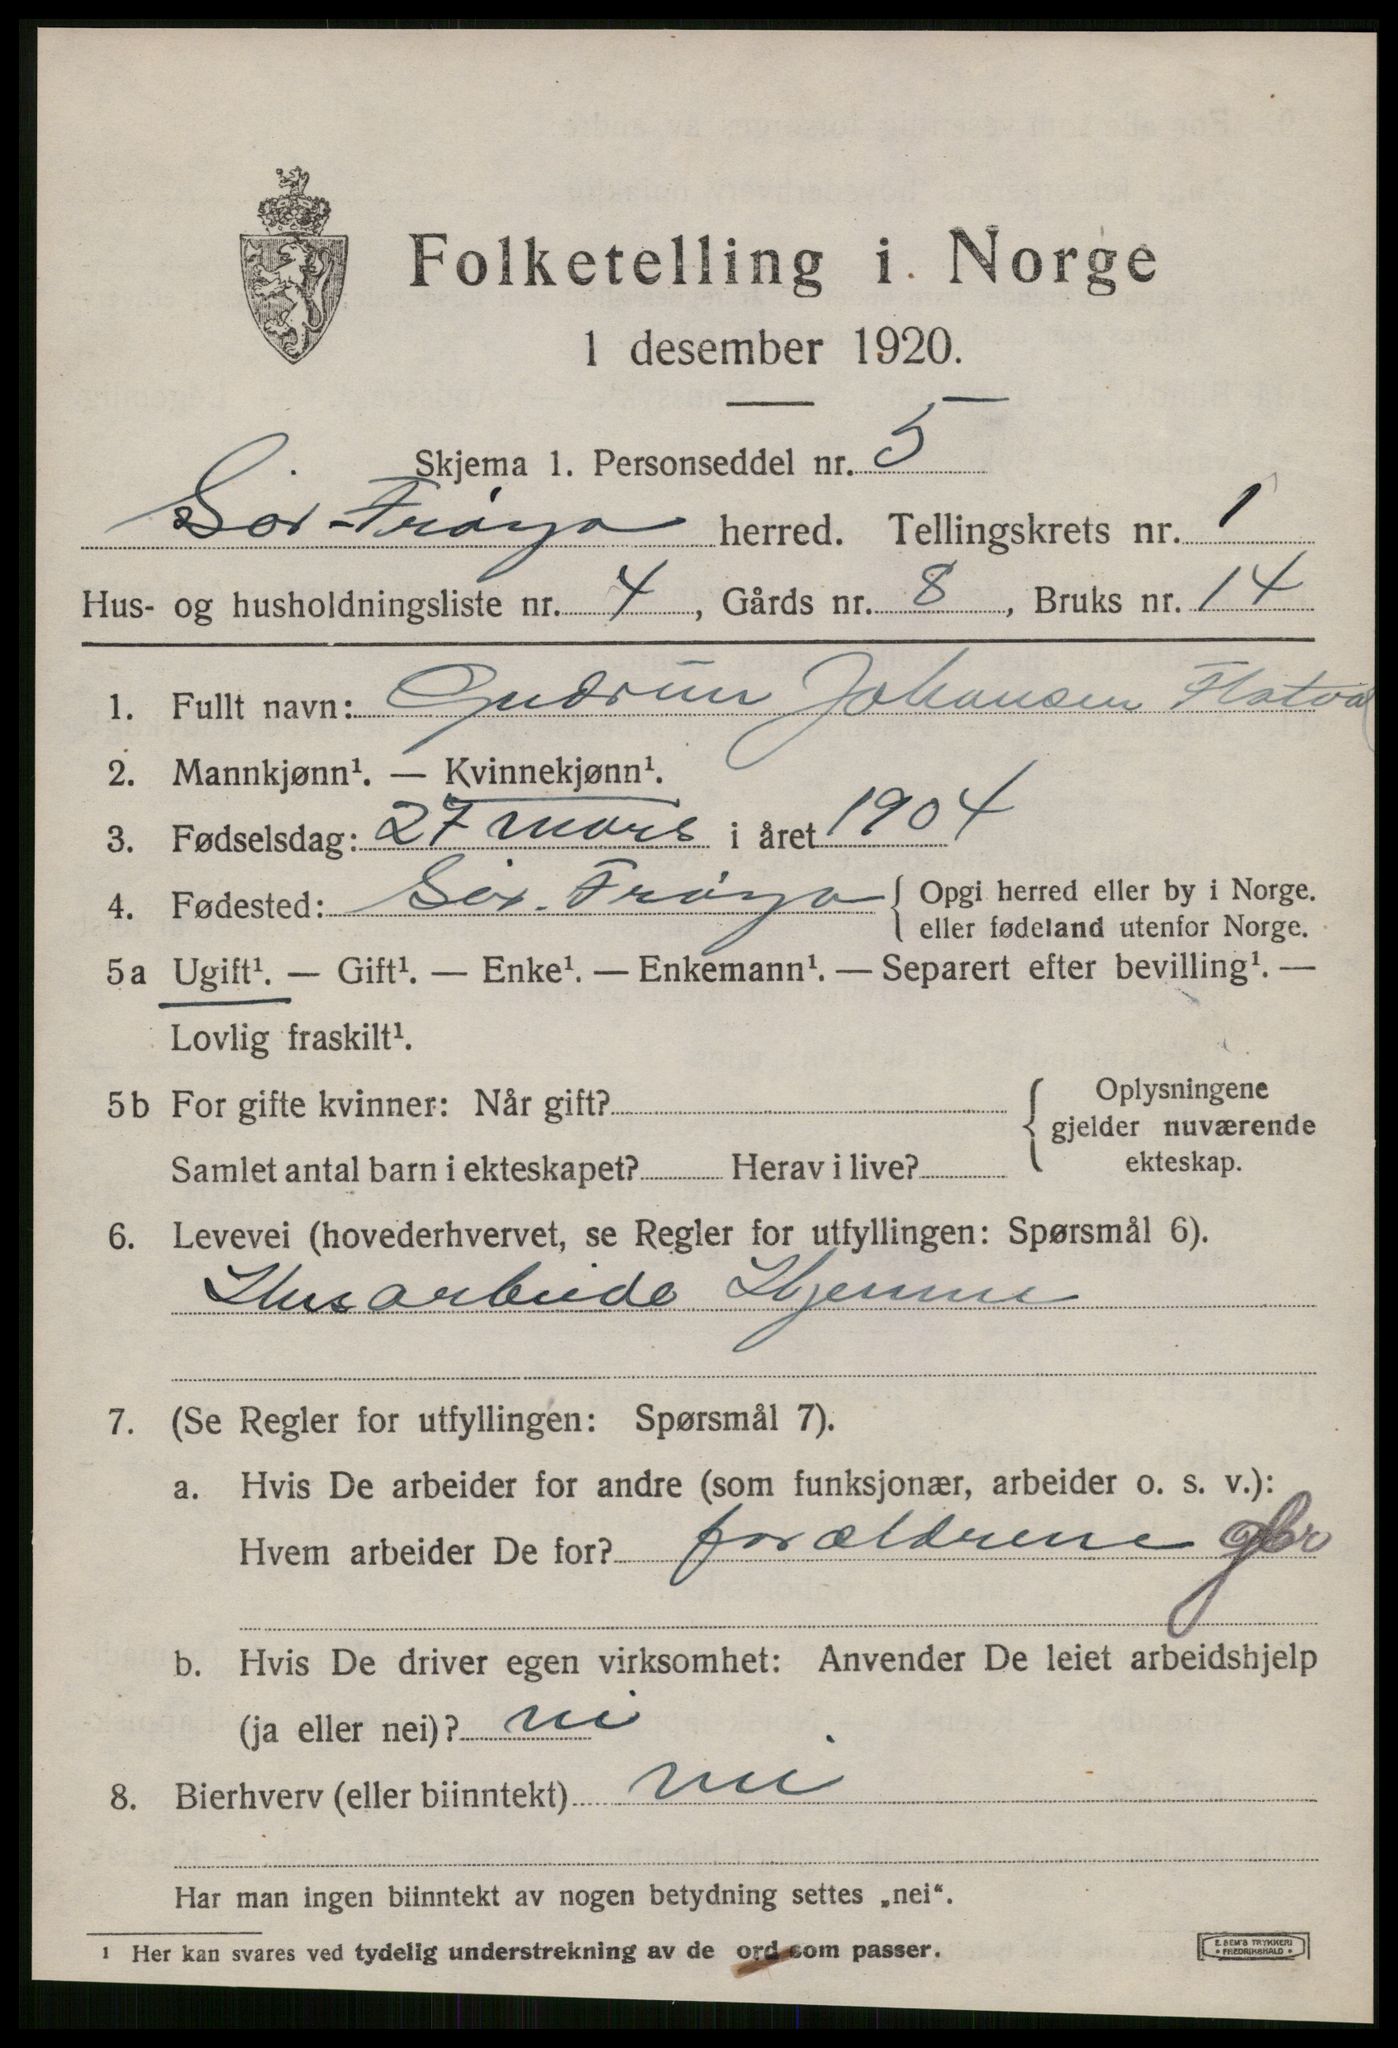 Folketelling i Norge
1 desember 1920.
Skjema 1. Personseddel nr. 5
Sör-Frøya herred. Tellingskrets nr. 1
Hus- og husholdningsliste nr. 4, Gårds nr. 8, Bruks nr. 14
1. Fullt navn: Gudrun Johansen Flatval
2. Mannkjønn¹. — Kvinnekjønn¹.
3. Fødselsdag: 27 mars i året 1904
4. Fødested: Sör-Frøya { Opgi herred eller by i Norge.
eller fødeland utenfor Norge.
5a Ugift¹. — Gift¹. — Enke¹. — Enkemann¹. — Separert efter bevilling¹. —
Lovlig fraskilt¹.
5b For gifte kvinner: Når gift? { Oplysningene
gjelder nuværende
Samlet antal barn i ekteskapet? Herav i live? ekteskap.
6. Levevei (hovederhvervet, se Regler for utfyllingen: Spørsmål 6).
Husarbeide Hjemme
7. (Se Regler for utfyllingen: Spørsmål 7).
a. Hvis De arbeider for andre (som funksjonær, arbeider o. s. v.):
Hvem arbeider De for? forældrene
b. Hvis De driver egen virksomhet: Anvender De leiet arbeidshjelp
(ja eller nei)? nei
8. Bierhverv (eller biinntekt) nei
Har man ingen biinntekt av nogen betydning settes „nei“.
1 Her kan svares ved tydelig understrekning av de ord som passer.
E. SEM'S TRYKKERI
• FREDRIKSHALD •